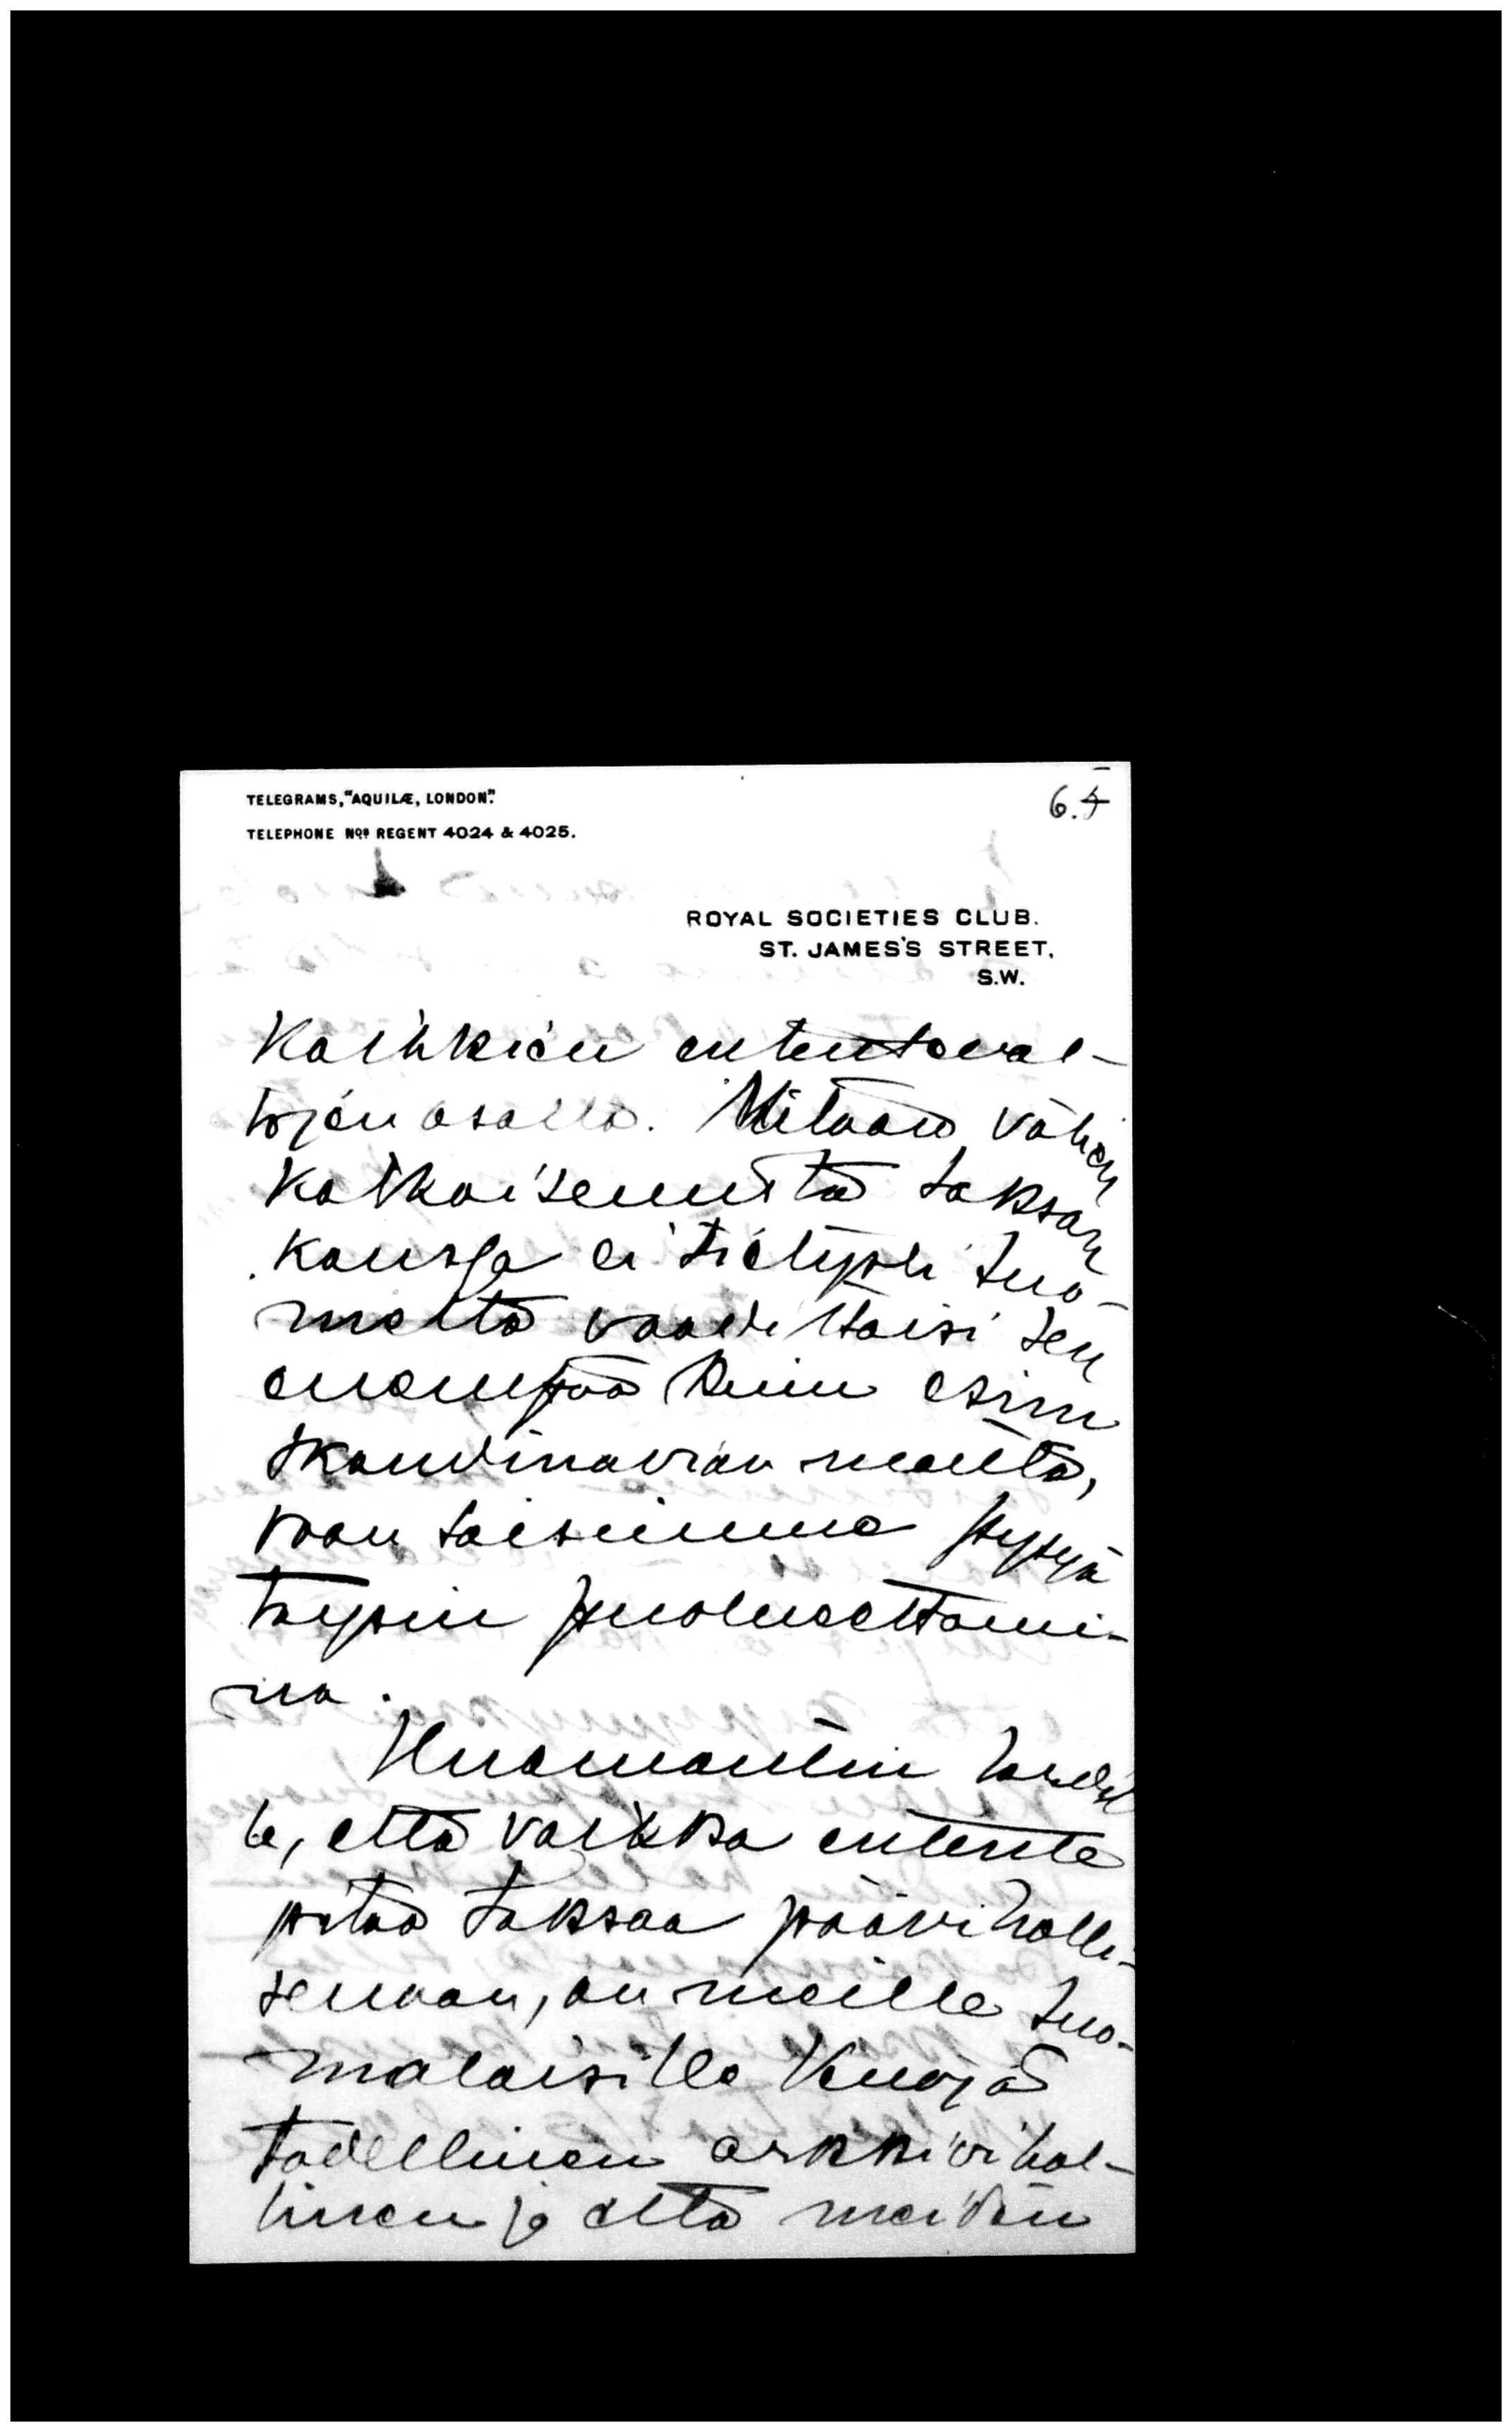 TELEGRAMS, "AQUILÆ, LONDON".
TELEPHONE Nos REGENT 4024 & 4025.
6.
ROYAL SOCIETIES CLUB.
ST. JAMES'S STREET,
S.W.
Kaikkien ententeval-
tojen osalta. Mitään välien
katkaisemista Saksan
kanssa ei tietysti Suo-
melta vaadittaisi sen
enempää kuin esim
Skandinavian mailta,
vaan saisimme pysyä
täysin puolueettomi-
na.
Huomautin
le, että vaikka entente
pitää Saksaa pääviholli-
senaan, on meille Suo-
malaisille Venäjä
todellinen arkkivihol-
linen ja että meidän